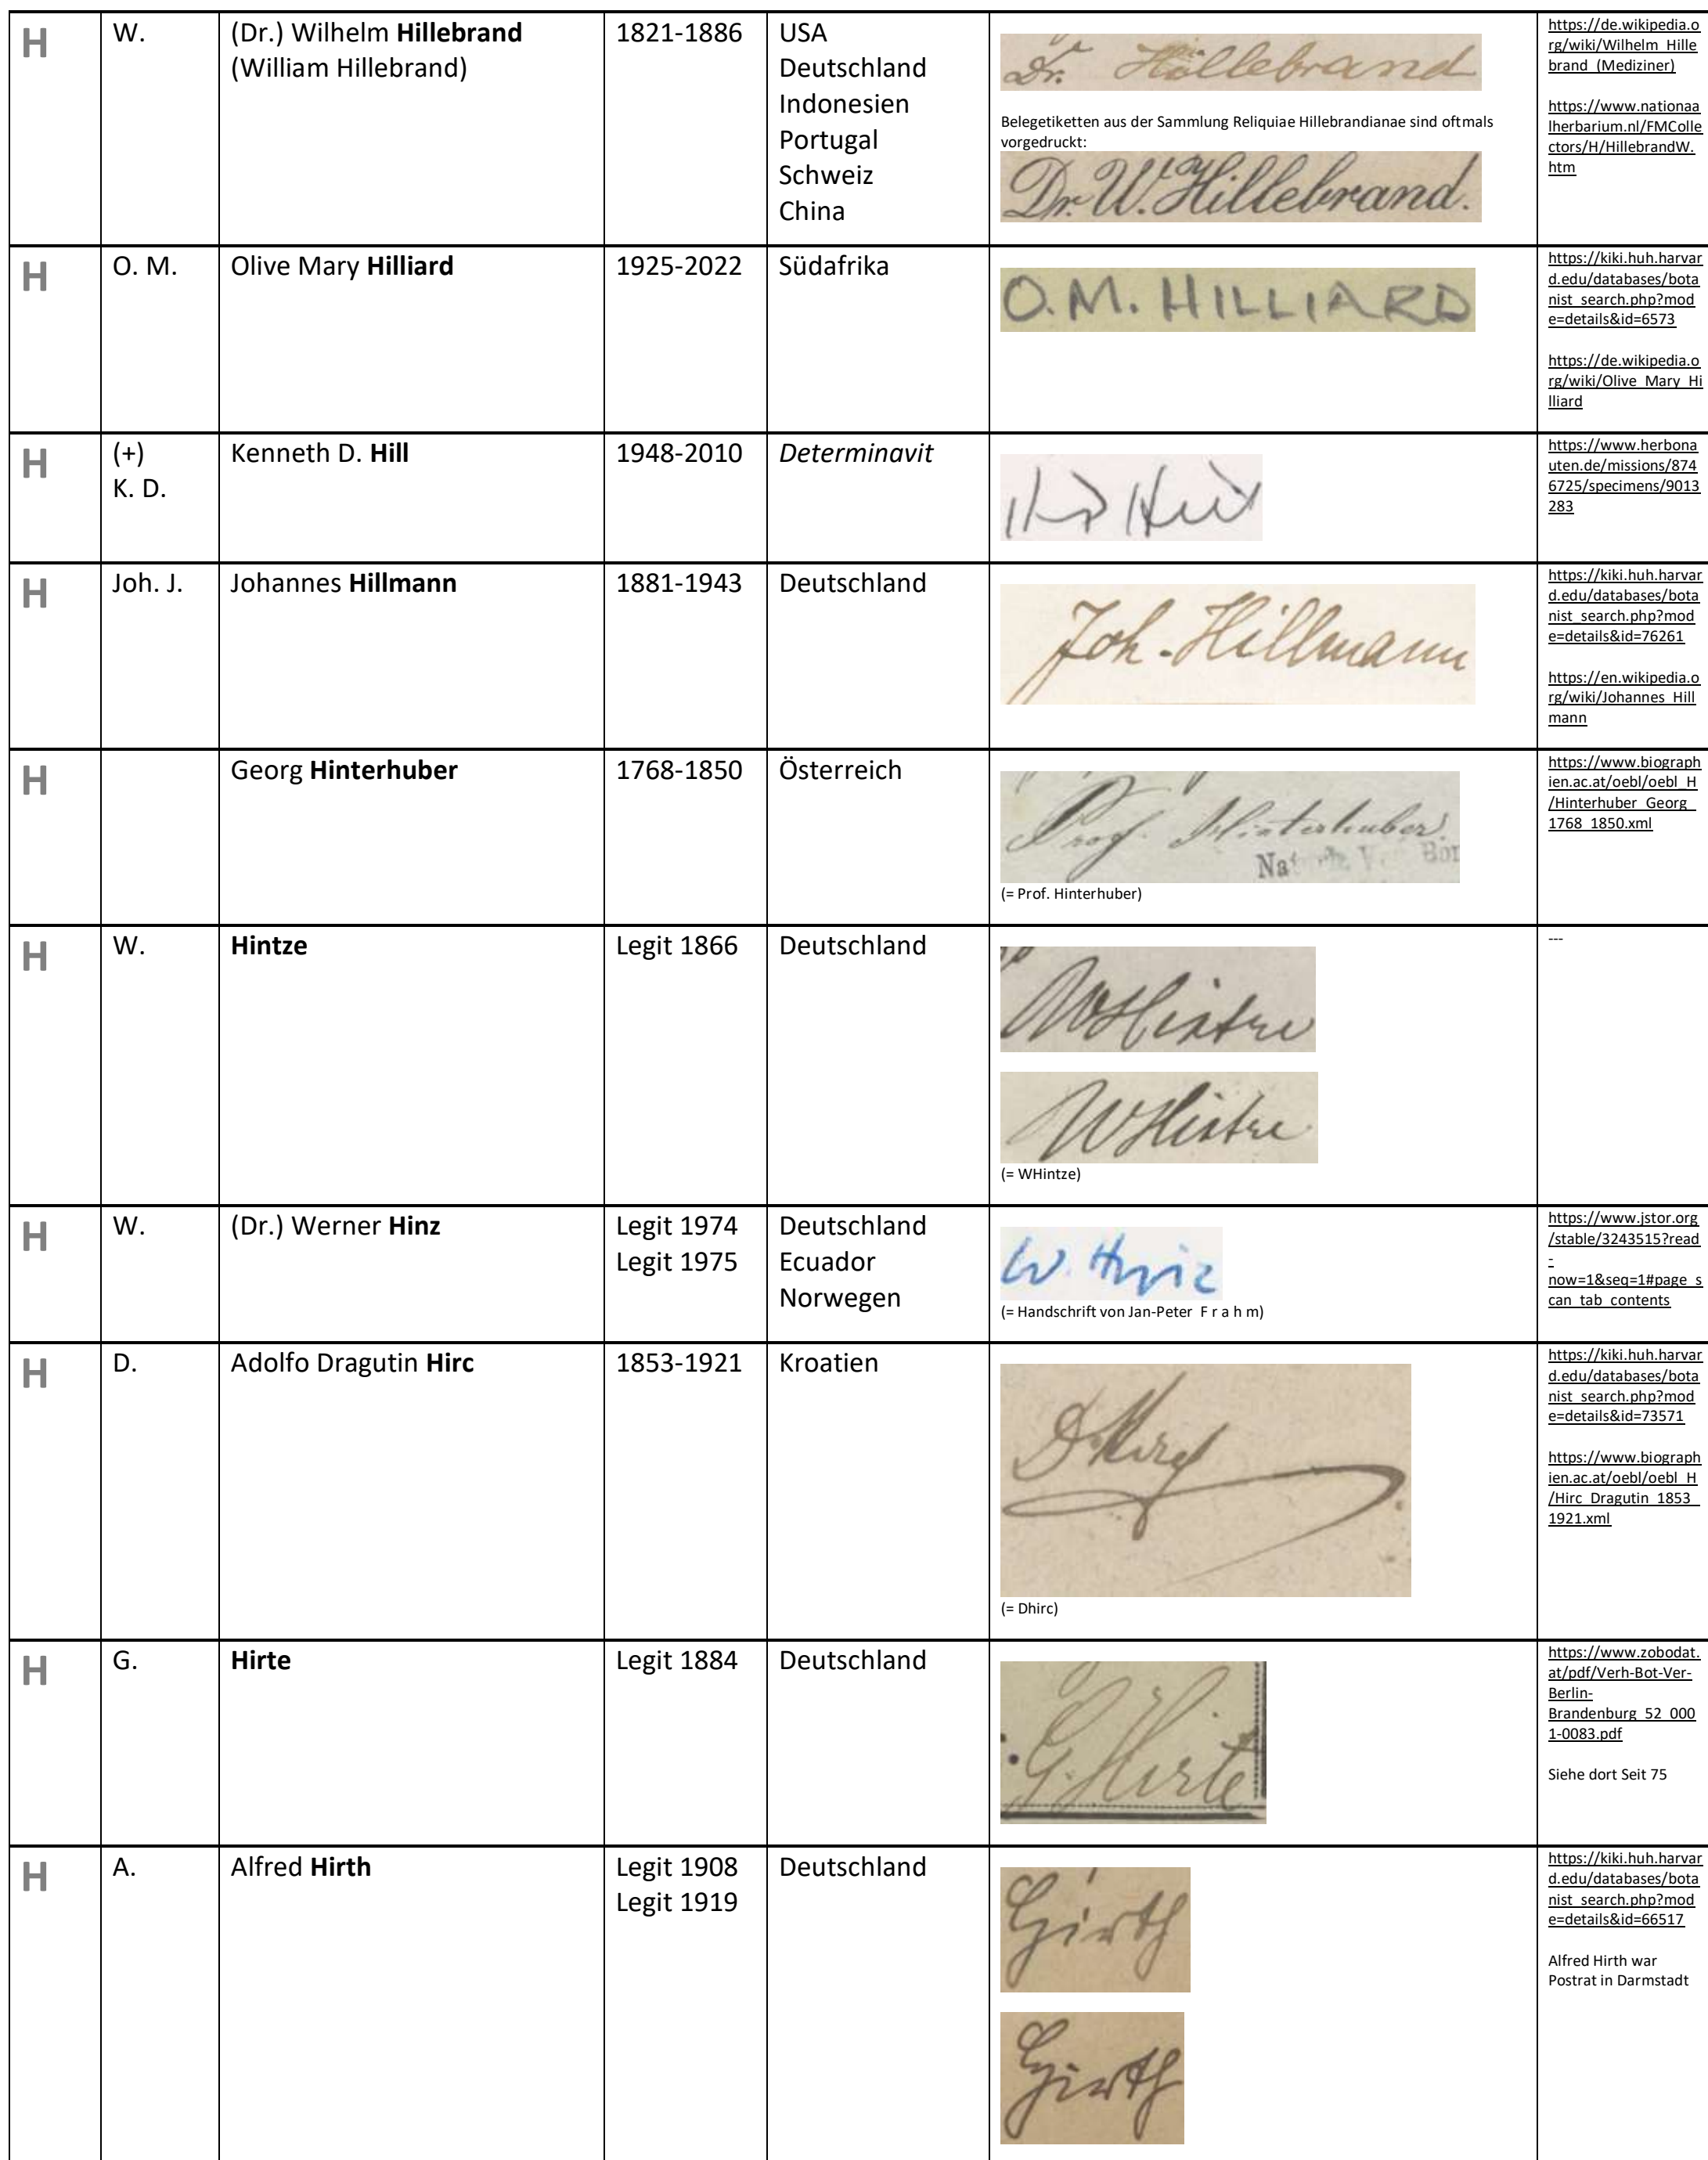 H
W.
(Dr.) Wilhelm Hillebrand
(William Hillebrand)
1821-1886
USA
Deutschland
Indonesien
Portugal
Schweiz
China
Dr. Hillebrand
Belegetiketten aus der Sammlung Reliquiae Hillebrandianae sind oftmals
vorgedruckt:
Dr. W. Hillebrand.
https://de.wikipedia.o
rg/wiki/Wilhelm_Hille
brand_(Mediziner)
https://www.nationaa
lherbarium.nl/FMColle
ctors/H/HillebrandW.
htm
H
O. M.
Olive Mary Hilliard
1925-2022
Südafrika
O.M. HILLIARD
https://kiki.huh.harvar
d.edu/databases/bota
nist_search.php?mod
e=details&id=6573
https://de.wikipedia.o
rg/wiki/Olive_Mary_Hi
lliard
H
(+)
K. D.
Kenneth D. Hill
1948-2010
Determinavit
KD Hill
https://www.herbona
uten.de/missions/874
6725/specimens/9013
283
H
Joh. J.
Johannes Hillmann
1881-1943
Deutschland
Joh. Hillmann
https://kiki.huh.harvar
d.edu/databases/bota
nist_search.php?mod
e=details&id=76261
https://en.wikipedia.o
rg/wiki/Johannes_Hill
mann
H
Georg Hinterhuber
1768-1850
Österreich
Prof. Hinterhuber.
(= Prof. Hinterhuber)
https://www.biograph
ien.ac.at/oebl/oebl_H
/Hinterhuber_Georg_
1768_1850.xml
H
W.
Hintze
Legit 1866
Deutschland
WHintze
WHintze
(= WHintze)
---
H
W.
(Dr.) Werner Hinz
Legit 1974
Legit 1975
Deutschland
Ecuador
Norwegen
W. Hinz
(= Handschrift von Jan-Peter F r a h m)
https://www.jstor.org
/stable/3243515?read
-
now=1&seq=1#page_s
can_tab_contents
H
D.
Adolfo Dragutin Hirc
1853-1921
Kroatien
DHirc
(= Dhirc)
https://kiki.huh.harvar
d.edu/databases/bota
nist_search.php?mod
e=details&id=73571
https://www.biograph
ien.ac.at/oebl/oebl_H
/Hirc_Dragutin_1853_
1921.xml
H
G.
Hirte
Legit 1884
Deutschland
G. Hirte
https://www.zobodat.
at/pdf/Verh-Bot-Ver-
Berlin-
Brandenburg_52_000
1-0083.pdf
Siehe dort Seit 75
H
A.
Alfred Hirth
Legit 1908
Legit 1919
Deutschland
Hirth
Hirth
https://kiki.huh.harvar
d.edu/databases/bota
nist_search.php?mod
e=details&id=66517
Alfred Hirth war
Postrat in Darmstadt